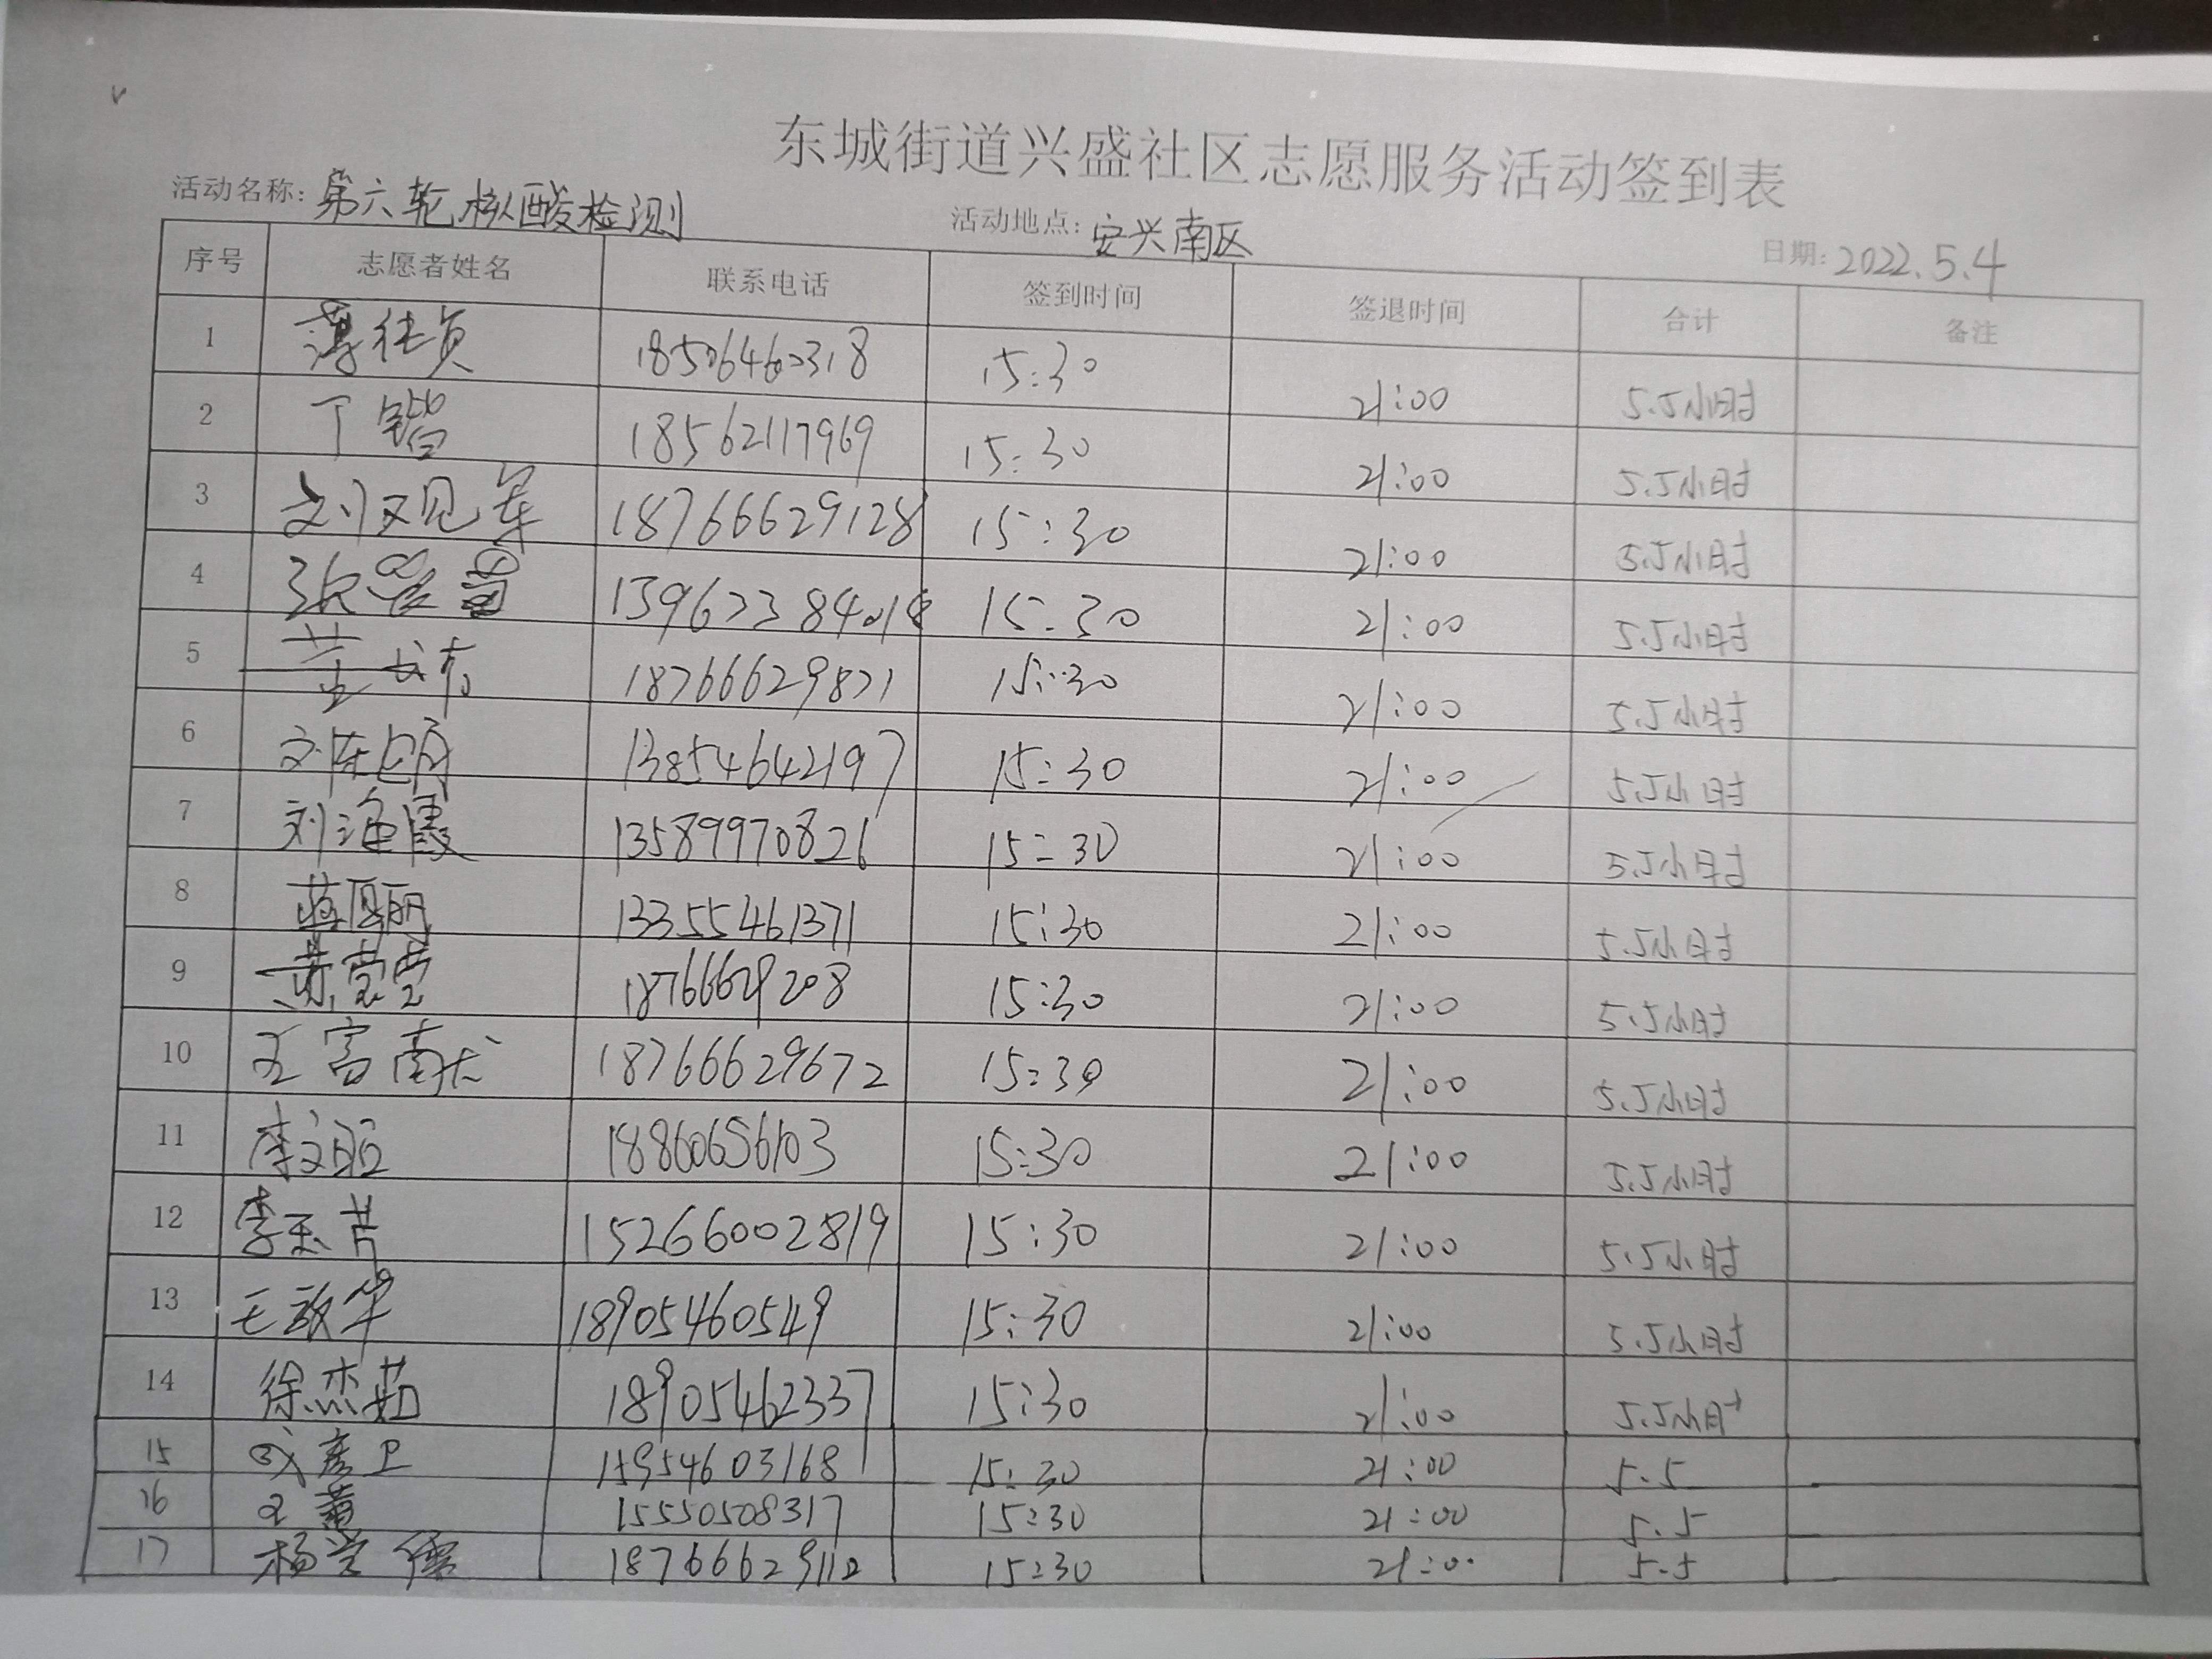 东城街道兴盛社区志愿服务活动签到表
活动名称：第六轮核酸检测 活动地点：安兴南区 日期：2022.5.4
序号 志愿者姓名 联系电话 签到时间 签退时间 合计 备注
1 15:30 21:00 5.5小时
2 丁锴 18562117969 15:30 21:00 5.5小时
3 18766629128 15:30 21:00 5.5小时
4 15:30 21:00 5.5小时
5 18766629871 15:30 21:00 5.5小时
6 13854642197 15:30 21:00 5.5小时
7 刘海霞 13589970826 15:30 21:00 5.5小时
8 13355461371 15:30 21:00 5.5小时
9 18766629208 15:30 21:00 5.5小时
10 18766629672 15:30 21:00 5.5小时
11 18860656103 15:30 21:00 5.5小时
12 15266002819 15:30 21:00 5.5小时
13 18905460549 15:30 21:00 5.5小时
14 徐杰茹 18905462337 15:30 21:00 5.5小时
15 15954603168 15:30 21:00 5.5
16 15550508317 15:30 21:00 5.5
17 15:30 21:00 5.5